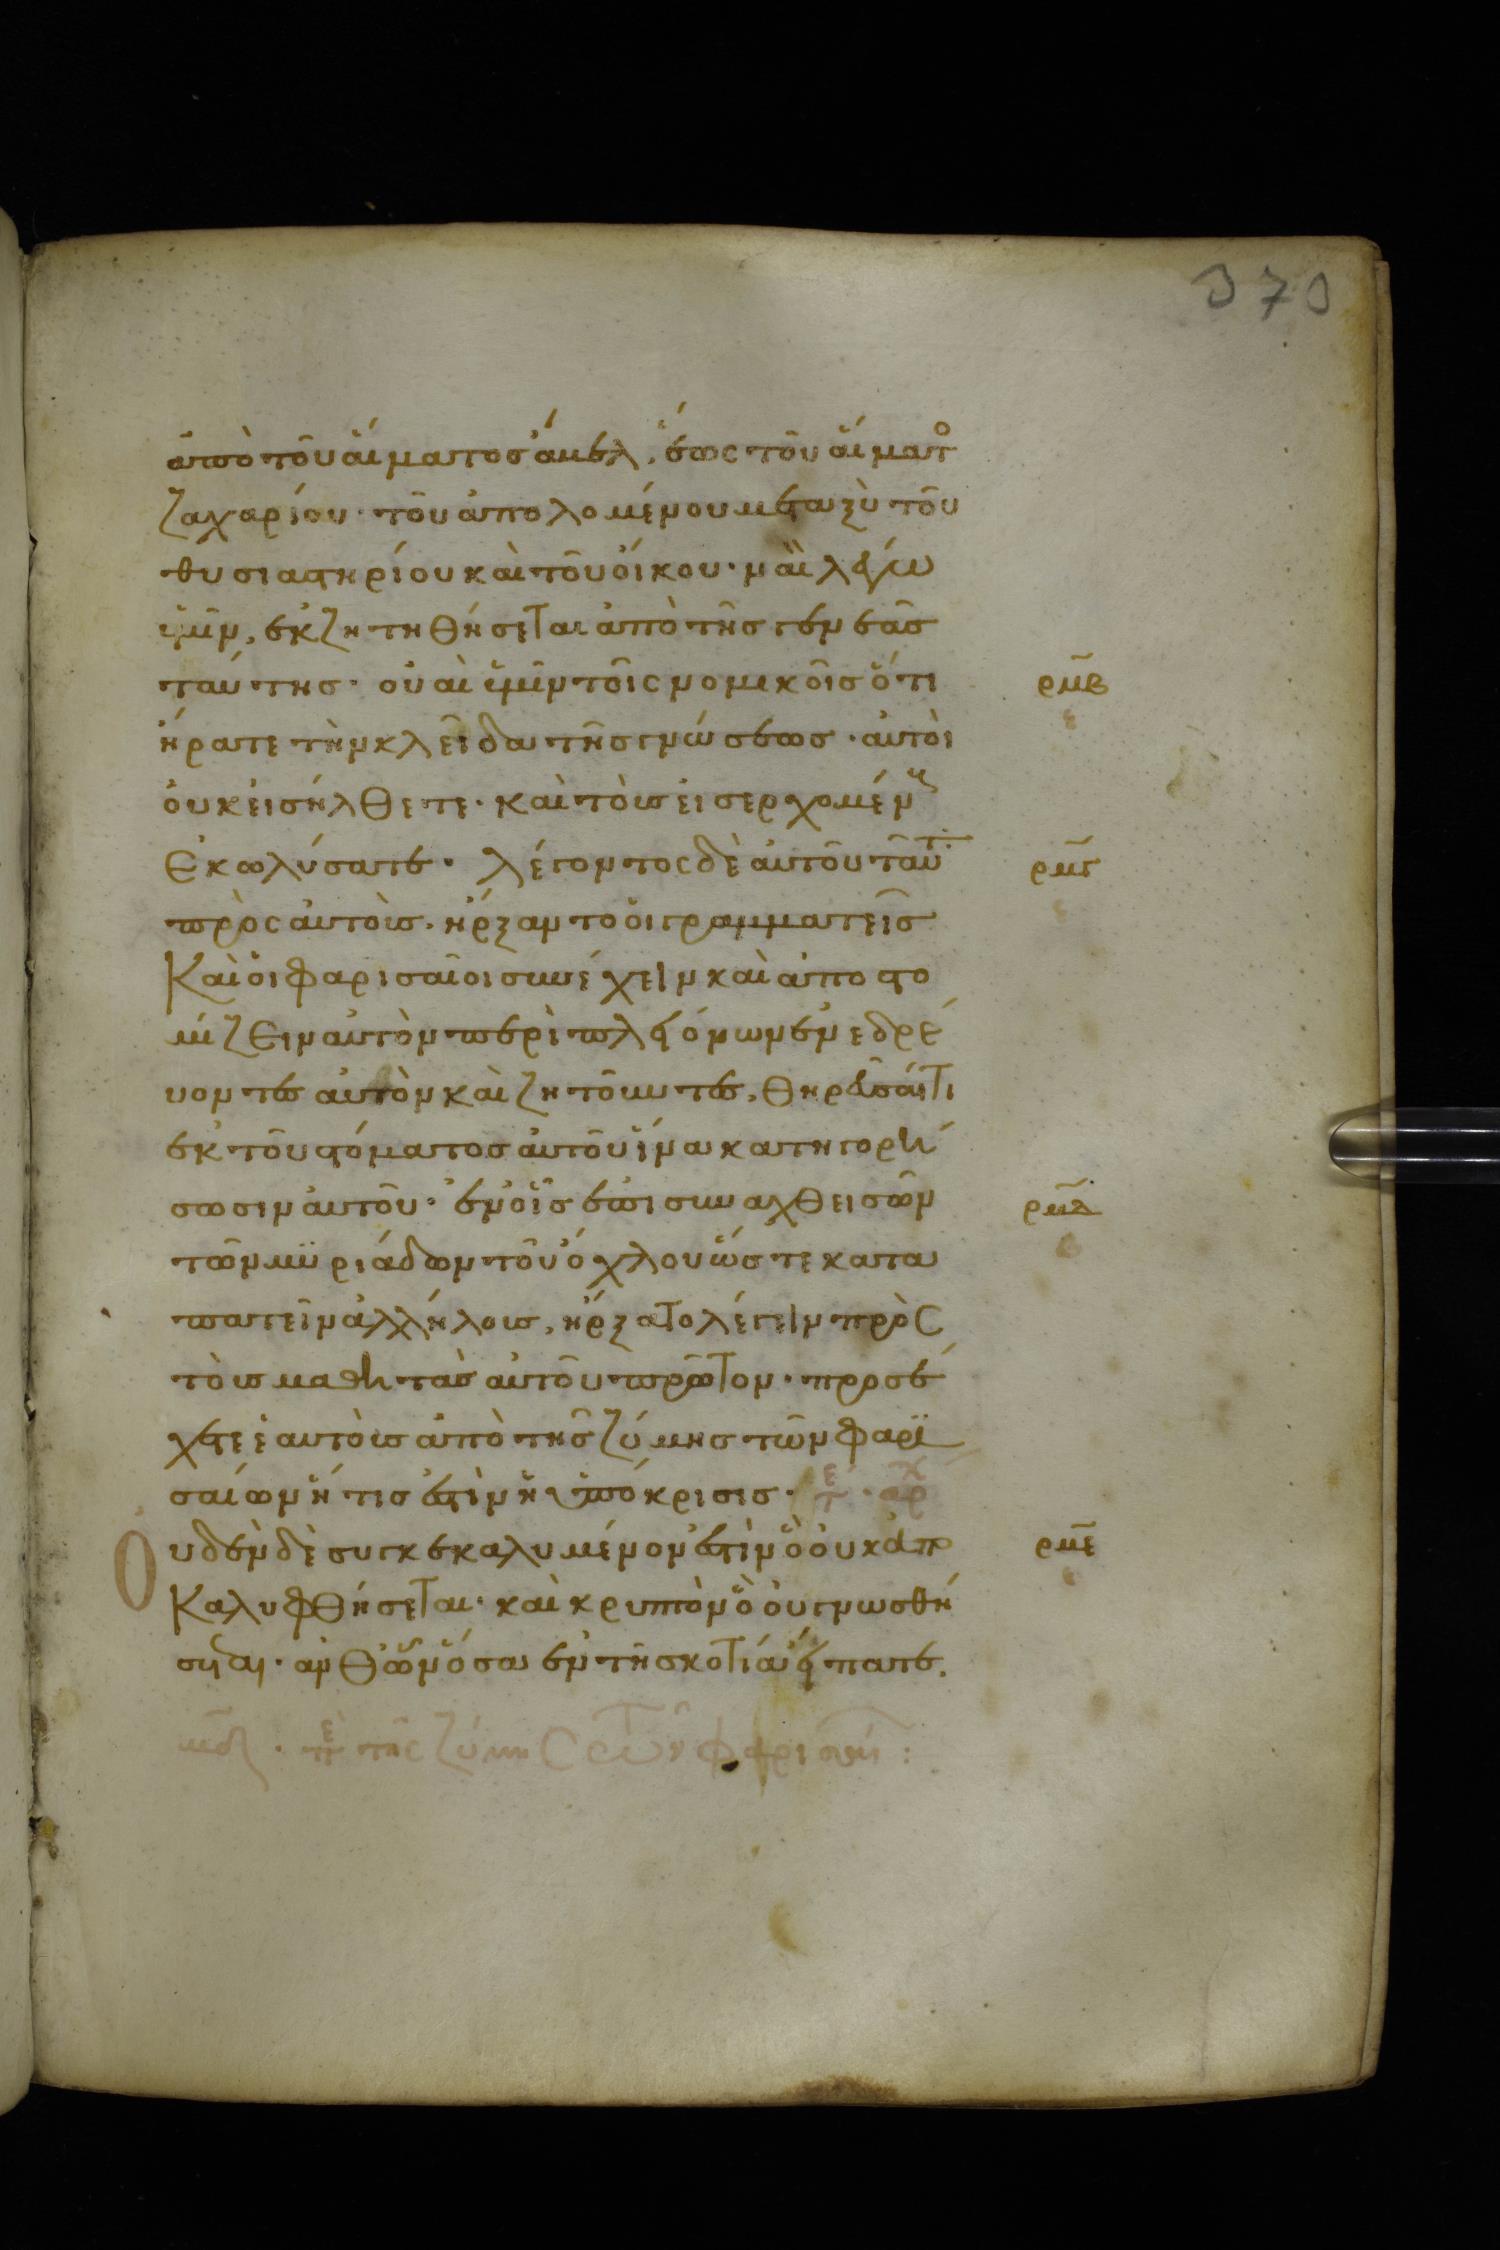 370
ἀπὸ τοῦ αἵματος ἄβελ, ἕως τοῦ αἵματο
ζαχαρίου· τοῦ ἀπολομένου μεταξὺ τοῦ
θυσιαστηρίου καὶ τοῦ οἴκου· ναὶ λέγω
ὑμῖν, ἐκζητηθήσεται ἀπὸ τῆς γενεᾶς
ταύτης· οὐαὶ ὑμῖν τοῖς νομικοῖς ὅτι ρμβ
ἤρατε τὴν κλεῖδα τῆς γνώσεως· αὐτοὶ
οὐκ εἰσήλθετε· καὶ τοὺς εἰσερχομέν
Ἐκωλύσατε· λέγοντος δὲ αὐτοῦ ταῦτ ρμγ
πρὸς αὐτοὺς· ἤρξαντο οἱ γραμματεῖς
Καὶ οἱ φαρισαῖοι συνέχειν καὶ ἀποστο
μίζειν αὐτὸν περὶ πλειόνων ἐνεδρεύ
υοντες αὐτὸν καὶ ζητοῦντες, θηρεῦσαί τι
ἐκ τοῦ στόματος αὐτοῦ ἵνα κατηγορή
σωσιν αὐτοῦ· ἐν οἷς ἐπισυναχθεισῶν ρμδ
τῶν μϋριάδων τοῦ ὄχλου ὥστε κατα
πατεῖν ἀλλήλους, ἤρξατο λέγειν πρὸς
τοὺς μαθητὰς αὐτοῦ πρῶτον· προσέ
χετε ἑαυτοῖς ἀπὸ τῆς ζύμης τῶν φαρϊ
σαίων ἥτις ἐστὶν ἡ ὑπόκρισις· τε· αρχ
Οὐδὲν δὲ συγκεκαλυμένον ἐστὶν ὃ οὐκ ἀπο ρμε
Καλυφθήσεται· καὶ κρυπτὸν ὃ οὐ γνωσθή
σεται· ἀνθ' ὧν ὅσα ἐν τῆ σκοτία εἴπατε,
περὶ τῆς ζύμης τῶν φαρισαί :